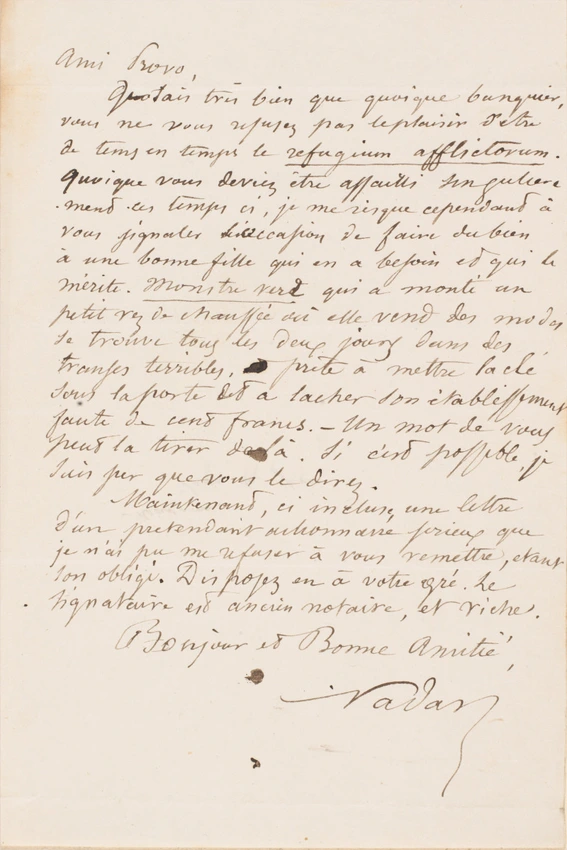 Ami Provo,
Je sais très bien que quoique banquier,
vous ne vous refusez pas le plaisir d'être
de tems en temps le refugium afflictorum.
Quoique vous deviez être assailli singulière
-ment ces temps ci, je me risque cependant à
vous signaler l'occasion de faire du bien
à une bonne fille qui en a besoin et qui le
mérite. Monstre verd qui a monté un
petit rez de chaussée où elle vend des modes
se trouve tous les deux jours dans des
transes terribles, prête à mettre la clé
sous la porte et à lacher son établissement
faute de cent francs. – Un mot de vous
peut la tirer de là. Si c'est possible, je
suis sur que vous le direz.
Maintenant, ci incluse une lettre
d'un prétendant actionnaire sérieux que
je n'ai pu me refuser à vous remettre, étant
son obligé. Disposez en à votre gré. Le
signataire est ancien notaire, et riche.
Bonjour et Bonne Amitié,
Nadar